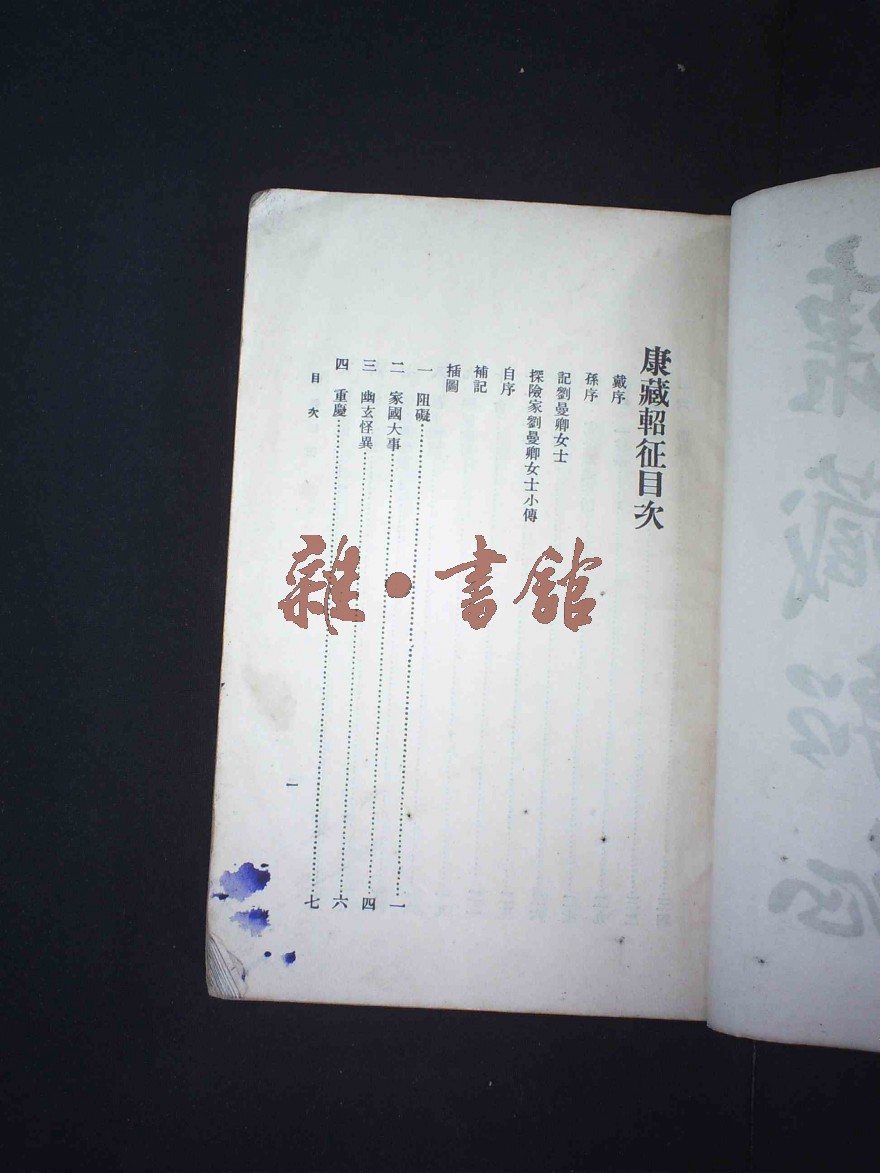 康藏軺征目次
戴序
孫序
記劉曼卿女士
探險家劉曼卿女士小傳
自序
補記
插圖
一 阻礙……一
二 家國大事……四
三 幽玄怪異……六
四 重慶……七
目次 一
雜·書館